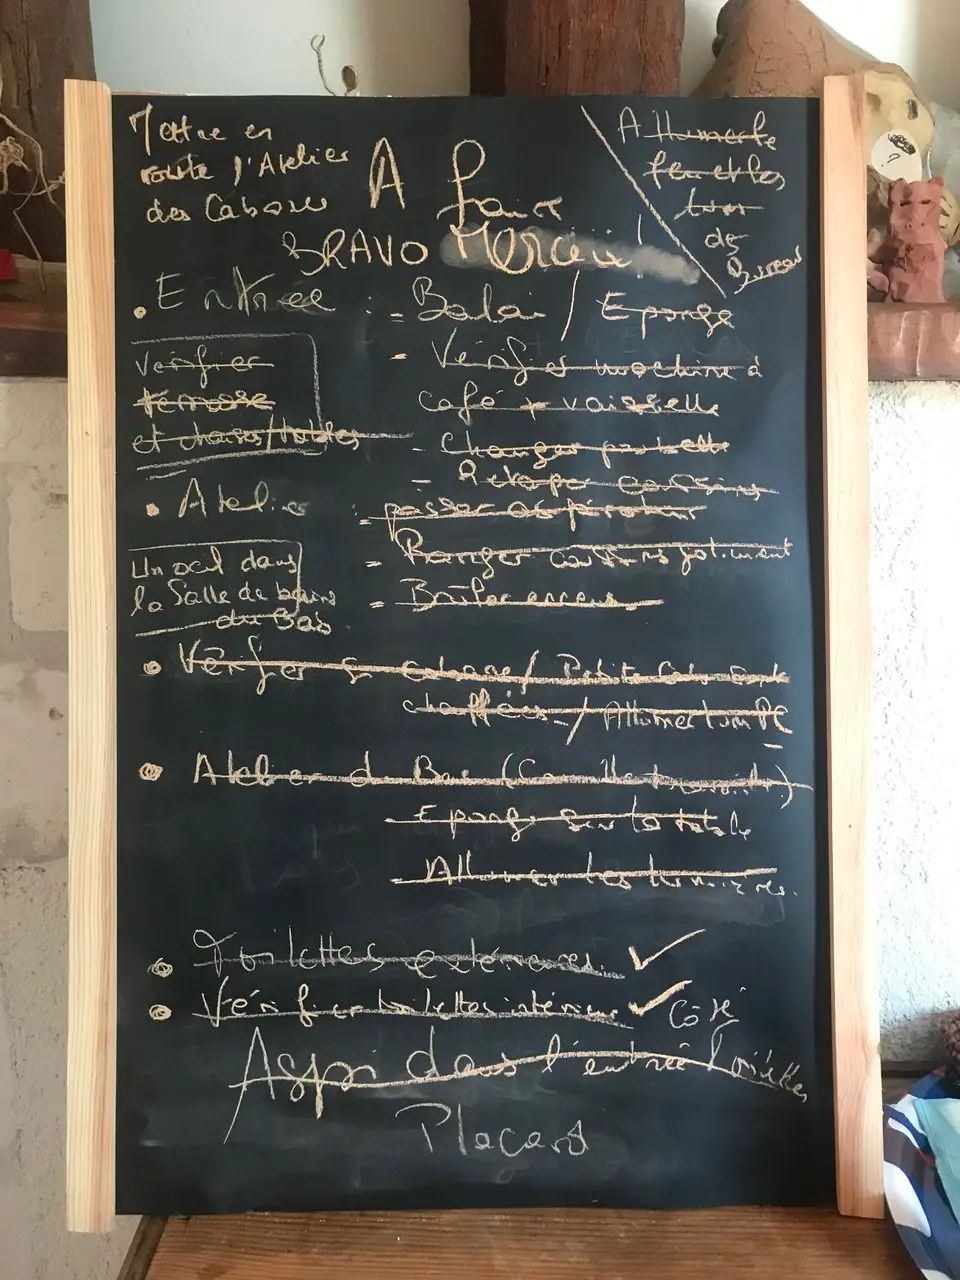 Mettre en
route l'Atelier
des Cabanes
A faire
BRAVO Merci !
Allumer le
feu et les
de
Bureau
• Entrée : - Balai / Eponge
Vérifier
terrasse
et chaises/tables
- Vérifier machine à
café + vaisselle
- Changer poubelle
- Retaper coussins
• Atelier : -
passer aspirateur
Un oeil dans
la Salle de bains
du bas
- Ranger coussins joliment
- Brûler encens
• Vérifier si / Petite
chauffées - / Allumer
• Atelier du Bas
- Eponge sur la table
- Allumer les lumières.
• Toilettes extérieures. ✓
• Vérifier toilettes intérieur ✓ Côté
Aspi dans l'entrée toilettes
Placard